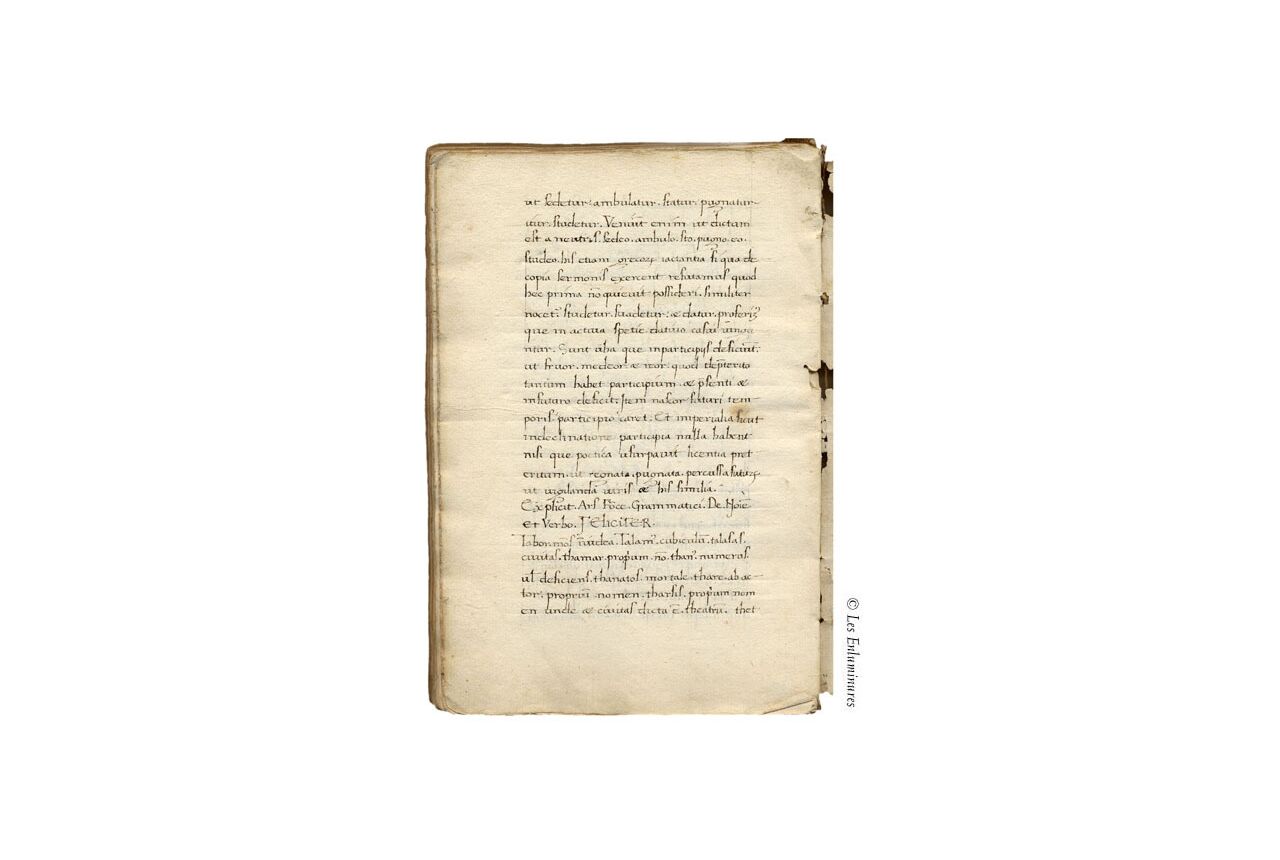 ut sedetur. ambulatur. statur. pugnatur
itur. studetur. Veniūt enim ut dictum
est a neutris. sedeo. ambulo. sto. pugno. eo.
studeo. his etiam grecoꝝ iactantia si qua de
copia sermonis exercent refutamus quod
hec prima nō quieuit possideri. similiter
nocet᷒. studetur. suadetur. & datur. proferūt᷒
que in actiua spetie datiuo casui iungū
ntur. Sunt ūba que inparticipijs deficiūt.
ut fruor. medeor & reor. quod depterito
tantum habet participium. & p̄senti &
infuturo deficit. Item nascor futuri tem
poris participio caret. Et imperialia sicut
indeclinatione participia nulla habent
nisi que poetica usurpauit licentia pret
eritum. ut regnata. pugnata. percussa futuꝝ
ut uigilanda uiris & his similia.
Explicit. Ars Foce. Grammatici. De. Noīe
et Verbo. FELICITER.
Tabor. mōs īiudea. Talam᷒. cubiculū. talasas.
ciuitas. thamar. proprium. nō. than᷒. numerus.
uł deficiens. thanatos. mortale. thare. ab ac
tor. propriū nomen. tharsis. propium nom
en unde & ciuitas dicta ē. theatrū. thet
© Les Enluminures